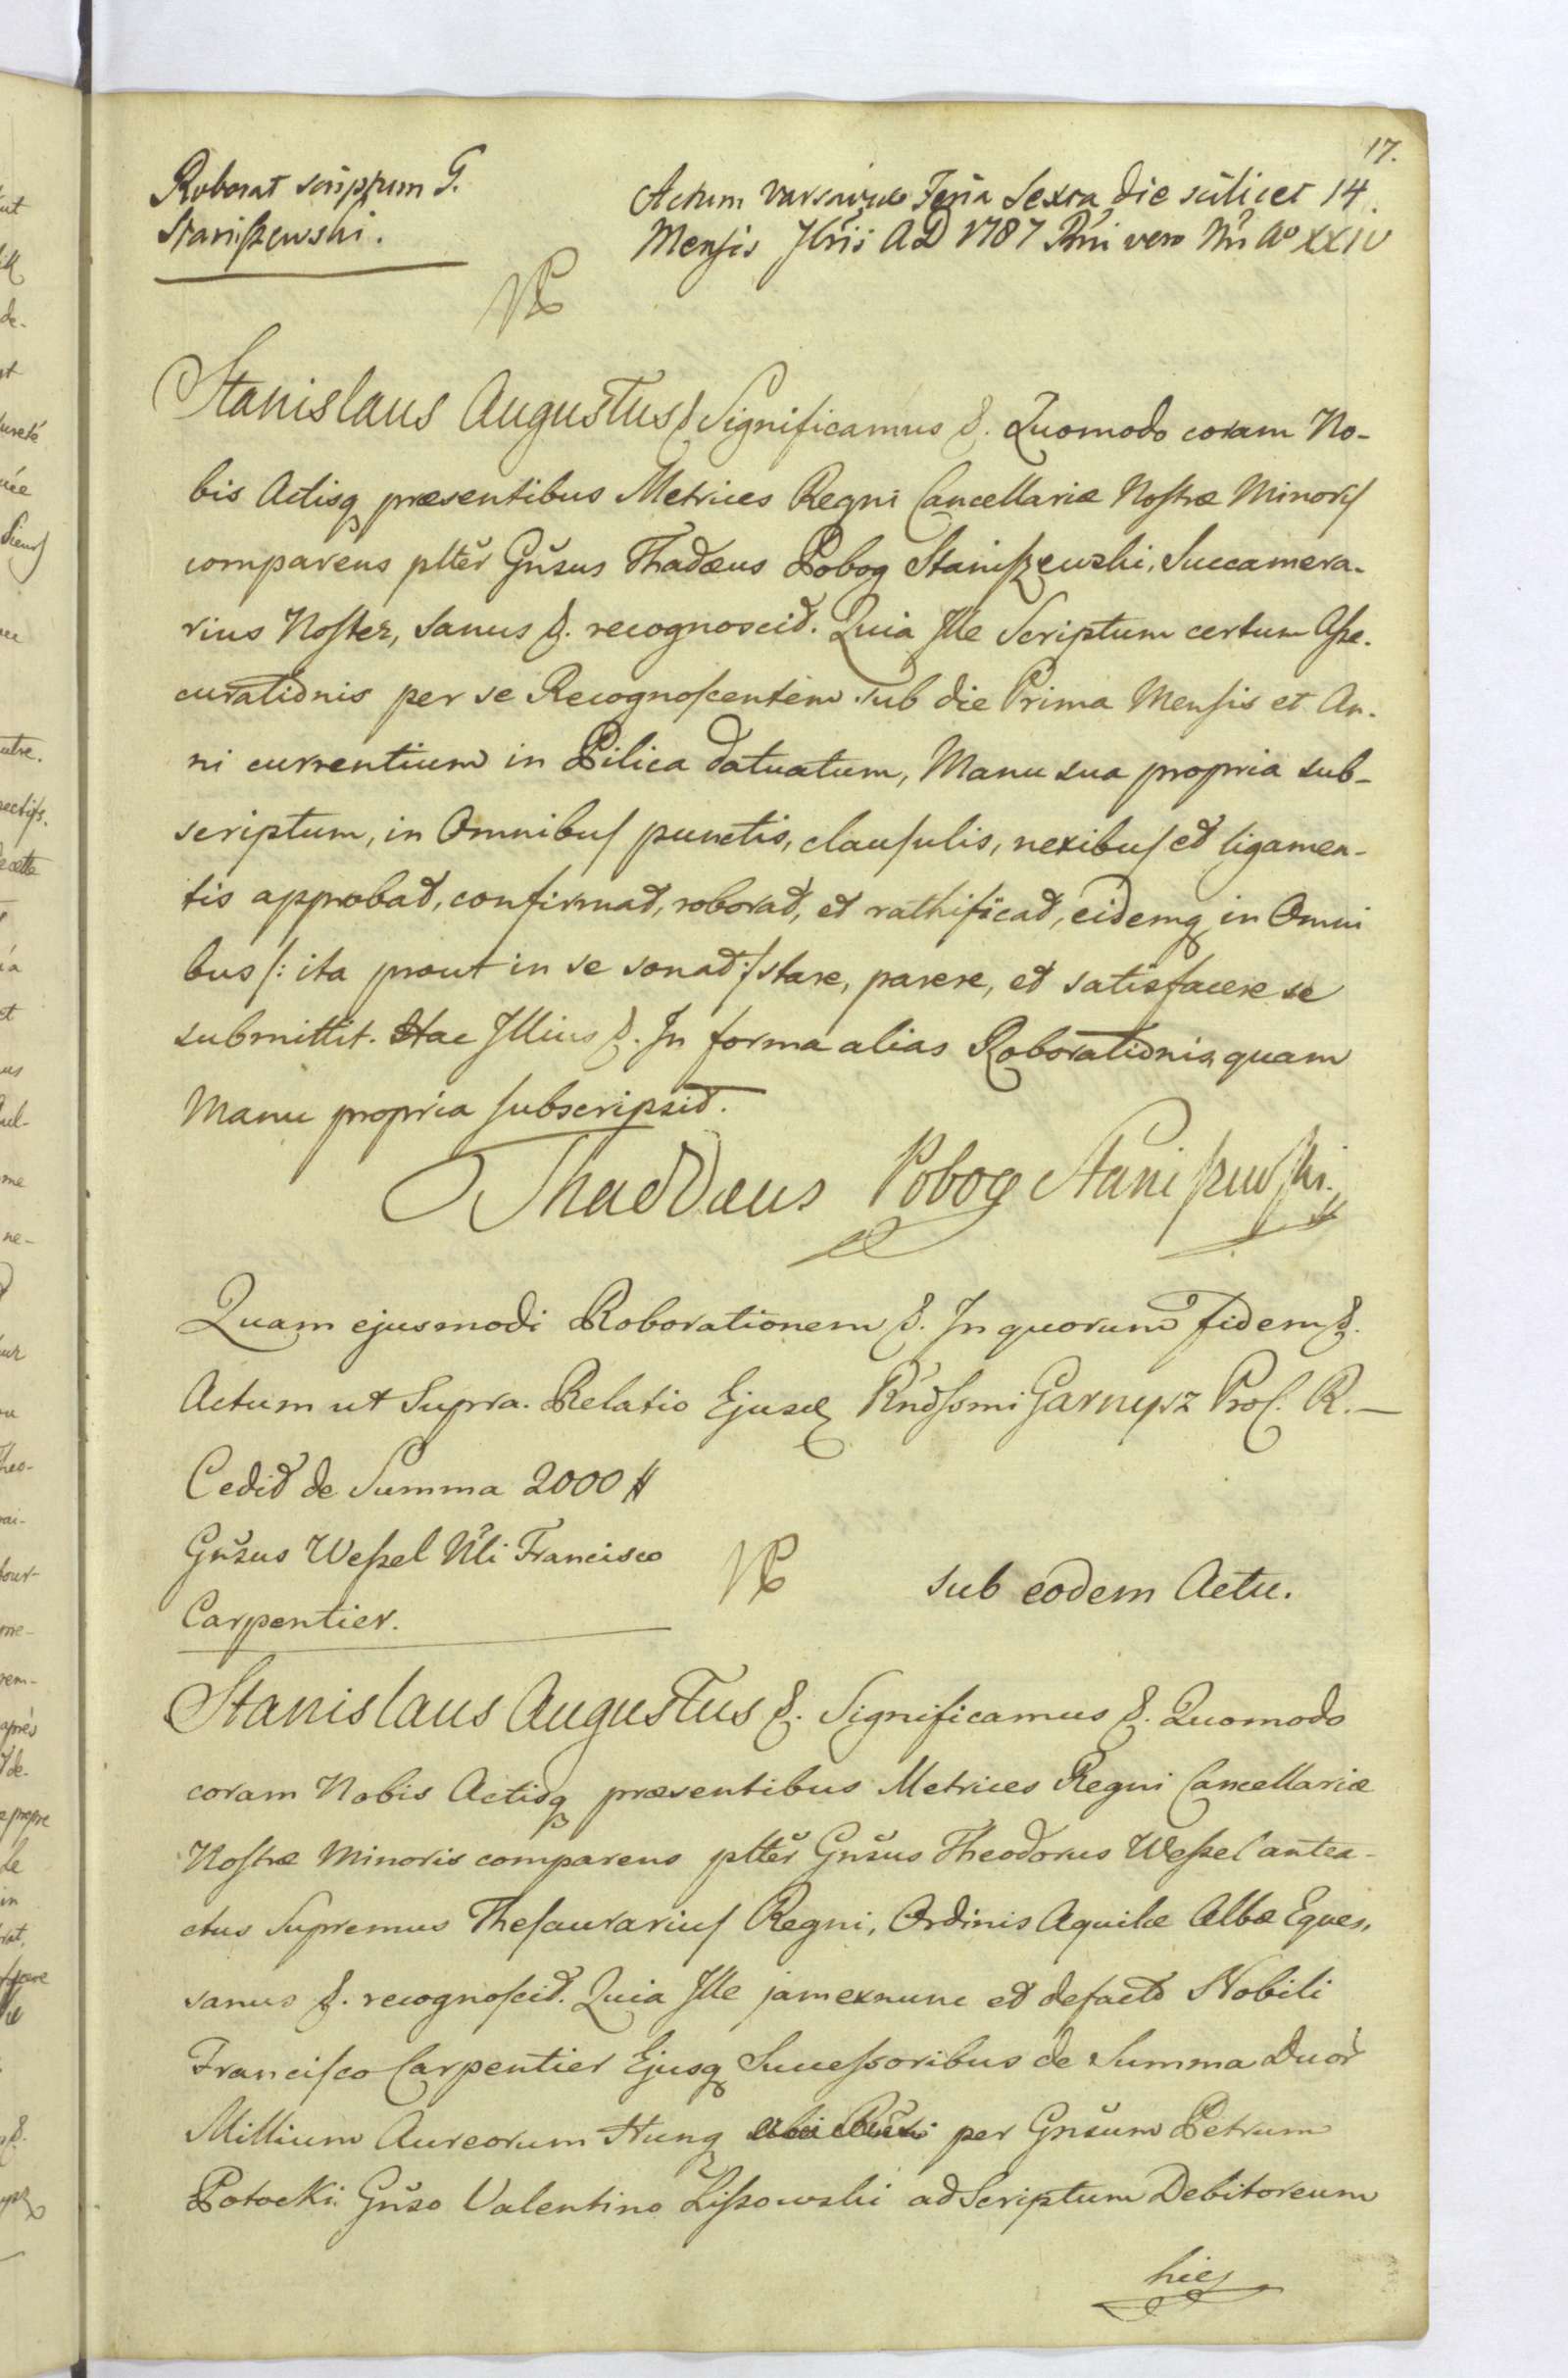 17.
Roborat scriptum G.
Staniszewski.
Actum Varsaviæ Feria Sexta die scilicet 14.
Mensis 7bris AD 1787 Rni vero Nri A° XXIV
Stanislaus Augustus &. Significamus &. Quomodo coram No-
bis Actisq præsentibus Metrices Regni Cancellariæ Nostræ Minoris
comparens plter Gnsus Thadæus Pobog Staniszewski, Succamera-
rius Noster, sanus &. recognoscit. Quia Ille Scriptum certum Asse-
curationis per se Recognoscentem sub die Prima Mensis et An-
ni currentium in Pilica datuatum, Manu sua propria sub-
scriptum, in Omnibus punctis, clausulis, nexibus et ligamen-
tis approbat, confirmat, roborat, et rathificat, eidemq in Omni
bus /: ita prout in se sonat :/ stare, parere, et satisfacere se
submittit. Hac Illius &. In forma alias Roborationis quam
Manu propria subscripsit.
Thaddæus Pobog Staniszewski.
Quam ejusmodi Roborationem &. In quorum fidem &.
Actum ut Supra. Relatio Ejusd Rndssmi Garnysz Proc. R. —
Cedit de Summa 2000 #
Gnsus Wessel Nli Francisco
Carpentier.
sub eodem Actu.
Stanislaus Augustus &. Significamus &. Quomodo
coram Nobis Actisq præsentibus Metrices Regni Cancellariæ
Nostræ Minoris comparens plter Gnsus Theodorus Wessel antea-
ctus Supremus Thesaurarius Regni, Ordinis Aquilæ Albæ Eques,
sanus &. recognoscit. Quia Ille jam exnunc et defacto Nobili
Francisco Carpentier Ejusq Successoribus de Summa Duor
Millium Aureorum Hung per Gnsum Petrum
Potocki Gnso Valentino Lissowski ad Scriptum Debitoreum
hic